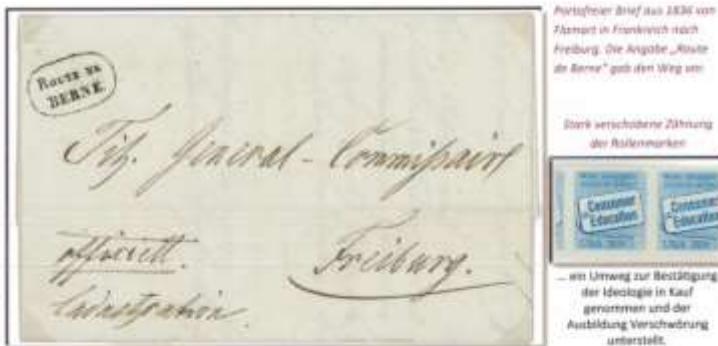 ROUTE DE
BERNE
Tit. General-Commissaire
officiell.
Freiburg.
Portofreier Brief aus 1836 von
Flamart in Frankreich nach
Freiburg. Die Angabe „Route
de Berne" gab den Weg vor.
Stark verschobene Zähnung
der Rollenmarken
Consumer
Education
Consumer
Education
... ein Umweg zur Bestätigung
der Ideologie in Kauf
genommen und der
Ausbildung Verschwörung
unterstellt.